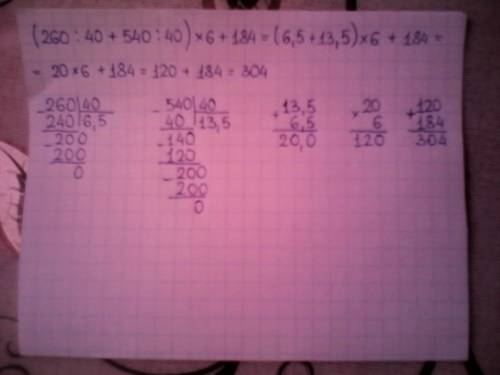 (260 : 40 + 540 : 40) × 6 + 184 = (6,5 + 13,5) × 6 + 184 =
= 20 × 6 + 184 = 120 + 184 = 304
- 260 | 40
240 | 6,5
- 200
200
0
- 540 | 40
40 | 13,5
- 140
120
- 200
200
0
+ 13,5
6,5
20,0
× 20
6
120
+ 120
184
304